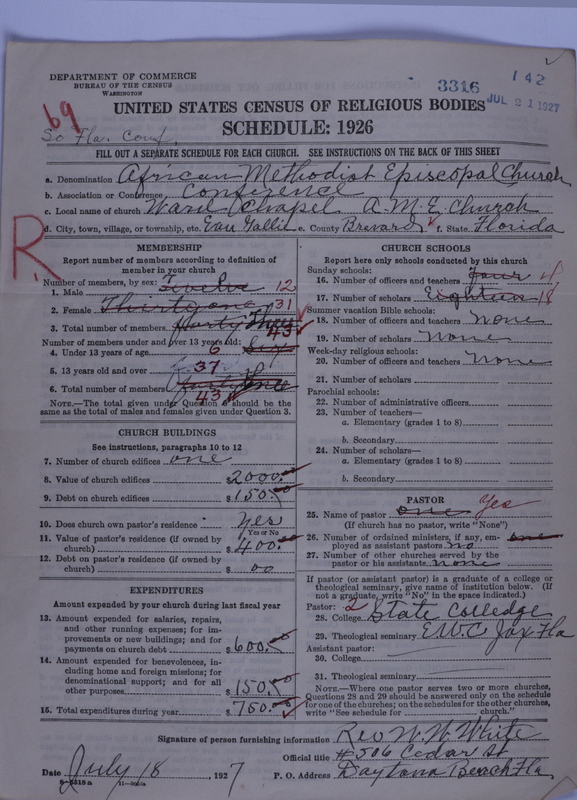 DEPARTMENT OF COMMERCE
BUREAU OF THE CENSUS
WASHINGTON
3316
142
JUL 21 1927
69
So Fla. Conf.
UNITED STATES CENSUS OF RELIGIOUS BODIES
SCHEDULE: 1926
FILL OUT A SEPARATE SCHEDULE FOR EACH CHURCH. SEE INSTRUCTIONS ON THE BACK OF THIS SHEET
a. Denomination African Methodist Episcopal Church
b. Association or Conference Conference
c. Local name of church Ward Chapel A.M.E Church
d. City, town, village, or township, etc. Eau Gallie e. County Brevard f. State Florida
R
MEMBERSHIP
Report number of members according to definition of member in your church
Number of members, by sex:
1. Male Twelve 12
2. Female Thirty one 31
3. Total number of members Forty Three 43
Number of members under and over 13 years old:
4. Under 13 years of age 6 Six
5. 13 years old and over 37
6. Total number of members Forty Three 43
NOTE.—The total given under Question 6 should be the same as the total of males and females given under Question 3.
CHURCH BUILDINGS
See instructions, paragraphs 10 to 12
7. Number of church edifices one
8. Value of church edifices $2000.
9. Debt on church edifices $150.
10. Does church own pastor's residence Yes
Yes or No
11. Value of pastor's residence (if owned by church) $400.
12. Debt on pastor's residence (if owned by church) $00
EXPENDITURES
Amount expended by your church during last fiscal year
13. Amount expended for salaries, repairs, and other running expenses; for improvements or new buildings; and for payments on church debt $600.
14. Amount expended for benevolences, including home and foreign missions; for denominational support; and for all other purposes $150.
15. Total expenditures during year $750.
CHURCH SCHOOLS
Report here only schools conducted by this church
Sunday schools:
16. Number of officers and teachers Four 4
17. Number of scholars Eighteen 18
Summer vacation Bible schools:
18. Number of officers and teachers None
19. Number of scholars None
Week-day religious schools:
20. Number of officers and teachers None
21. Number of scholars
Parochial schools:
22. Number of administrative officers
23. Number of teachers—
a. Elementary (grades 1 to 8)
b. Secondary
24. Number of scholars—
a. Elementary (grades 1 to 8)
b. Secondary
PASTOR
25. Name of pastor one Yes
(If church has no pastor, write "None")
26. Number of ordained ministers, if any, employed as assistant pastors no one
27. Number of other churches served by the pastor or his assistants none
If pastor (or assistant pastor) is a graduate of a college or theological seminary, give name of institution below. (If not a graduate, write "No" in the space indicated.)
Pastor: 2
28. College State Colledge
29. Theological seminary E.W.C Jax Fla
Assistant pastor:
30. College
31. Theological seminary
NOTE.—Where one pastor serves two or more churches, Questions 28 and 29 should be answered only on the schedule for one of the churches; on the schedules for the other churches, write "See schedule for church."
Signature of person furnishing information Rev W. W White
Official title #506 Cedar St
Date July 18, 1927 P. O. Address Daytona Beach Fla